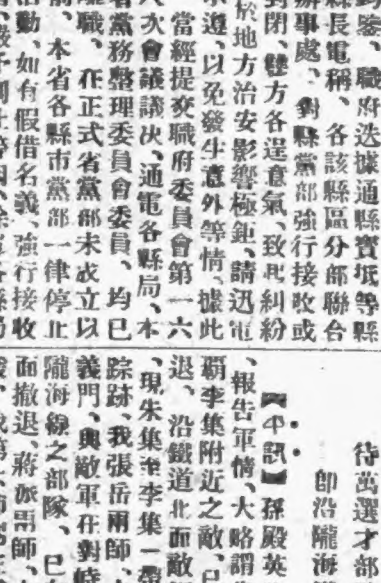 到鑒、職府迭據通縣寶坻等縣
縣長電稱、各該縣區分部聯合
辦事處、對縣黨部強行接收或
封閉、雙方各逞意氣、致糾紛
於地方治安影響極鉅、請迅電
示遵、以免發生意外等情、據此
當經提交職府委員會第一六
八次會議議决、通電各縣局、本
省黨務整理委員會委員、均已
離職、在正式省黨部未成立以
前、本省各縣市黨部一律停止
活動、如有假借名義、強行接收
待萬選才部
即沿隴海
訊】孫殿英
、報告軍情、大略謂
覇李集附近之敵、已
退、沿鐵道北面敵
、現朱集至李集一帶
踪跡、我張岳兩師、
義門、與敵軍在對峙
隴海線之部隊、已
面撤退、蔣派兩師、